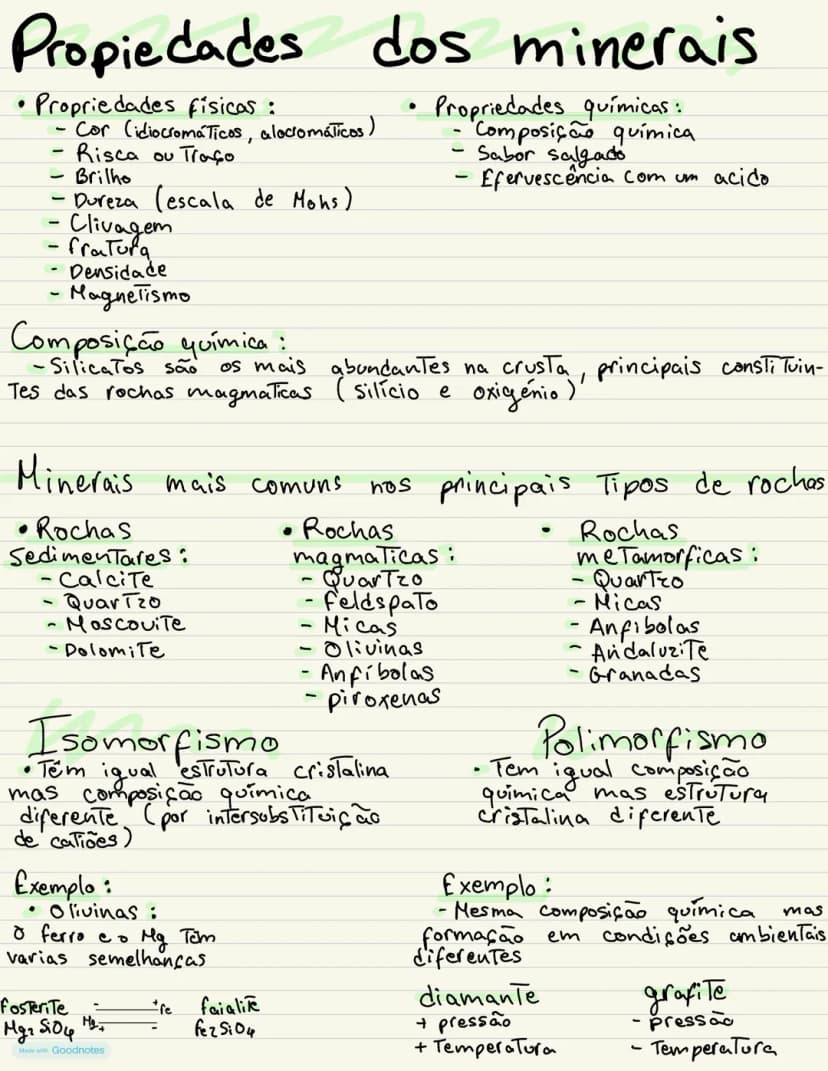 Propiedades dos minerais
• Propriedades físicas :
- Cor (idiocromáticos, alocromáticos)
- Risca ou Traço
- Brilho
- Dureza (escala de Mohs)
- Clivagem
- fratura
- Densidade
- Magnetismo
• Propriedades químicas :
- Composição química
- Sabor salgado
- Efervescência com um acido
Composição química :
- Silicatos são os mais abundantes na crusta, principais constituin-
tes das rochas magmaticas (silício e oxigénio)
Minerais mais comuns nos principais Tipos de rochas
• Rochas
sedimentares :
- Calcite
- Quartzo
- Moscovite
- Dolomite
• Rochas
magmaticas :
- Quartzo
- feldspato
- Micas
- Olivinas
- Anfíbolas
- piroxenas
• Rochas
metamorficas :
- Quartzo
- Micas
- Anfibolas
- Andaluzite
- Granadas
Isomorfismo
• Têm igual estrutura cristalina
mas composição química
diferente (por intersubstituição
de catiões)
Exemplo :
• Olivinas :
O ferro e o Mg Têm
varias semelhanças
fosterite - +fe faialite
Mg2 SiO4 Mg+ - fe2SiO4
Polimorfismo
• Tem igual composição
química mas estrutura
cristalina diferente
Exemplo :
- Mesma composição química mas
formação em condições ambientais
diferentes
diamante
+ pressão
+ Temperatura
grafite
- pressão
- Temperatura
Made with Goodnotes